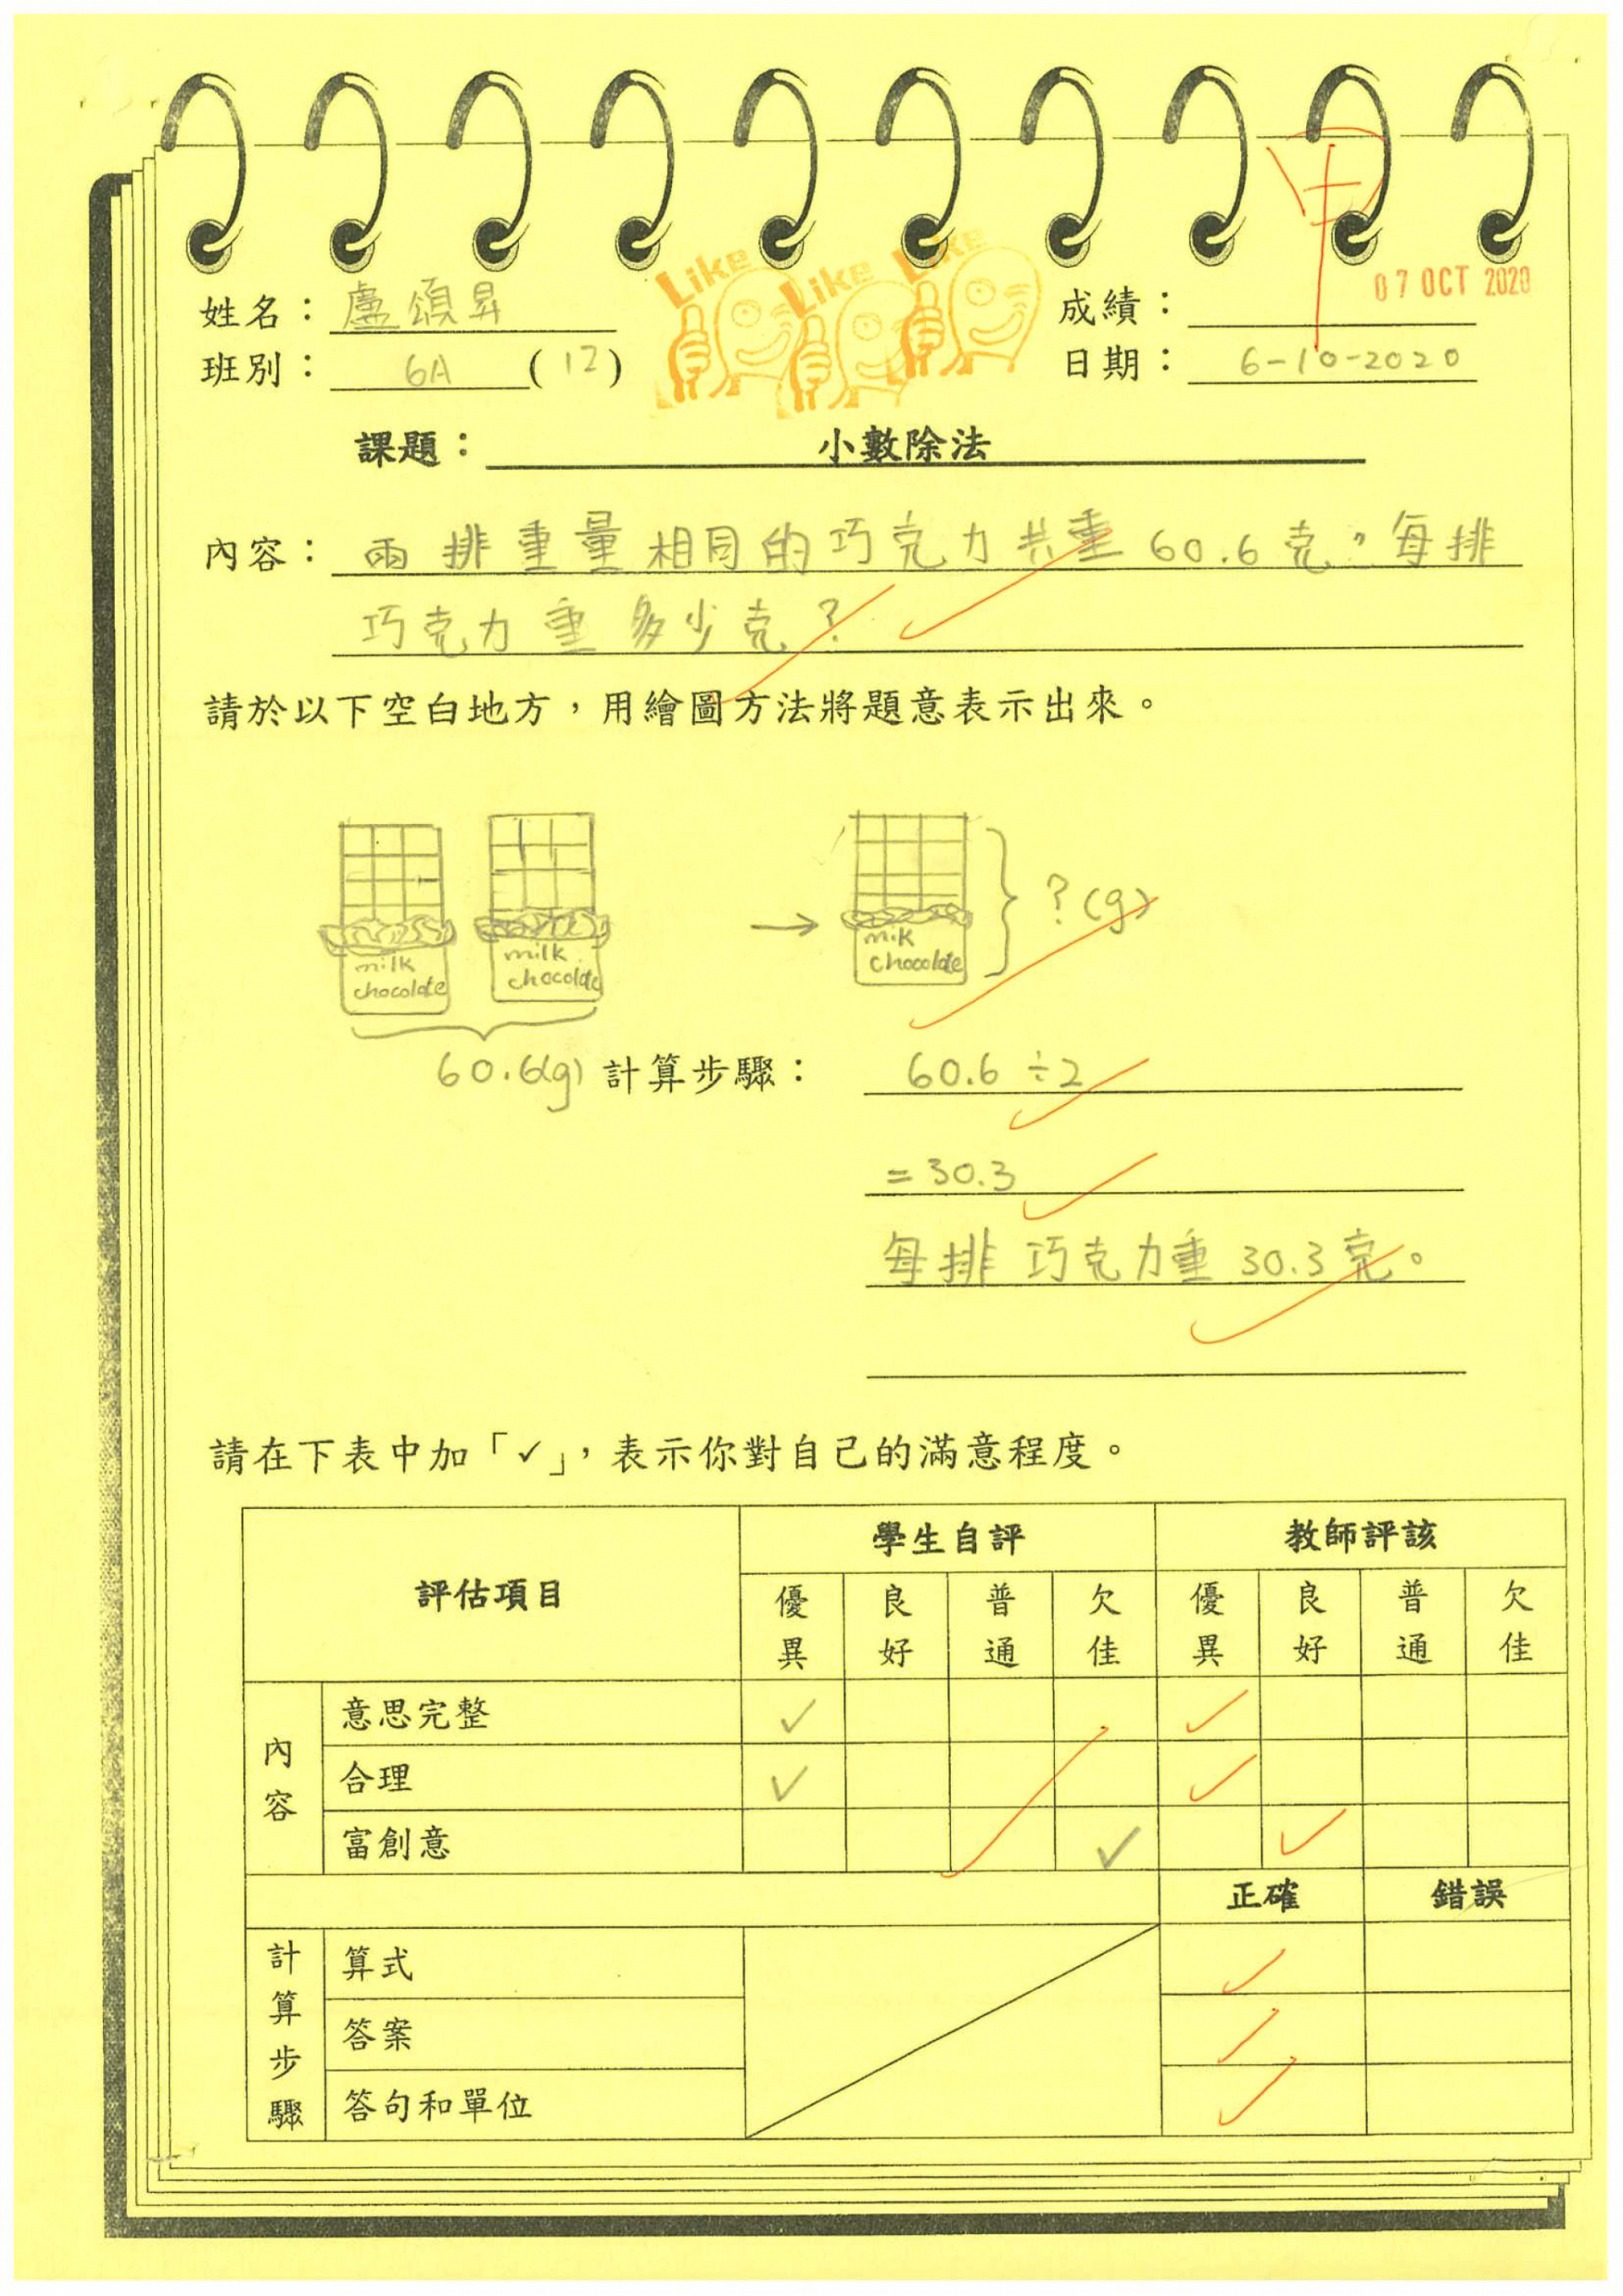 Like Like Like
甲
07 OCT 2020
姓名：盧頌昇 成績：
班別：6A (12) 日期：6-10-2020
課題：小數除法
內容：兩排重量相同的巧克力共重60.6克，每排
巧克力重多少克？
請於以下空白地方，用繪圖方法將題意表示出來。
milk chocolate
milk chocolate
→
mik chocolate
?(g)
60.6(g) 計算步驟：60.6÷2
=30.3
每排巧克力重30.3克。
請在下表中加「✓」，表示你對自己的滿意程度。
評估項目 學生自評 教師評該
優異 良好 普通 欠佳 優異 良好 普通 欠佳
內容
意思完整 ✓ ✓
合理 ✓ ✓
富創意 ✓ ✓
正確 錯誤
計算步驟
算式 ✓
答案 ✓
答句和單位 ✓